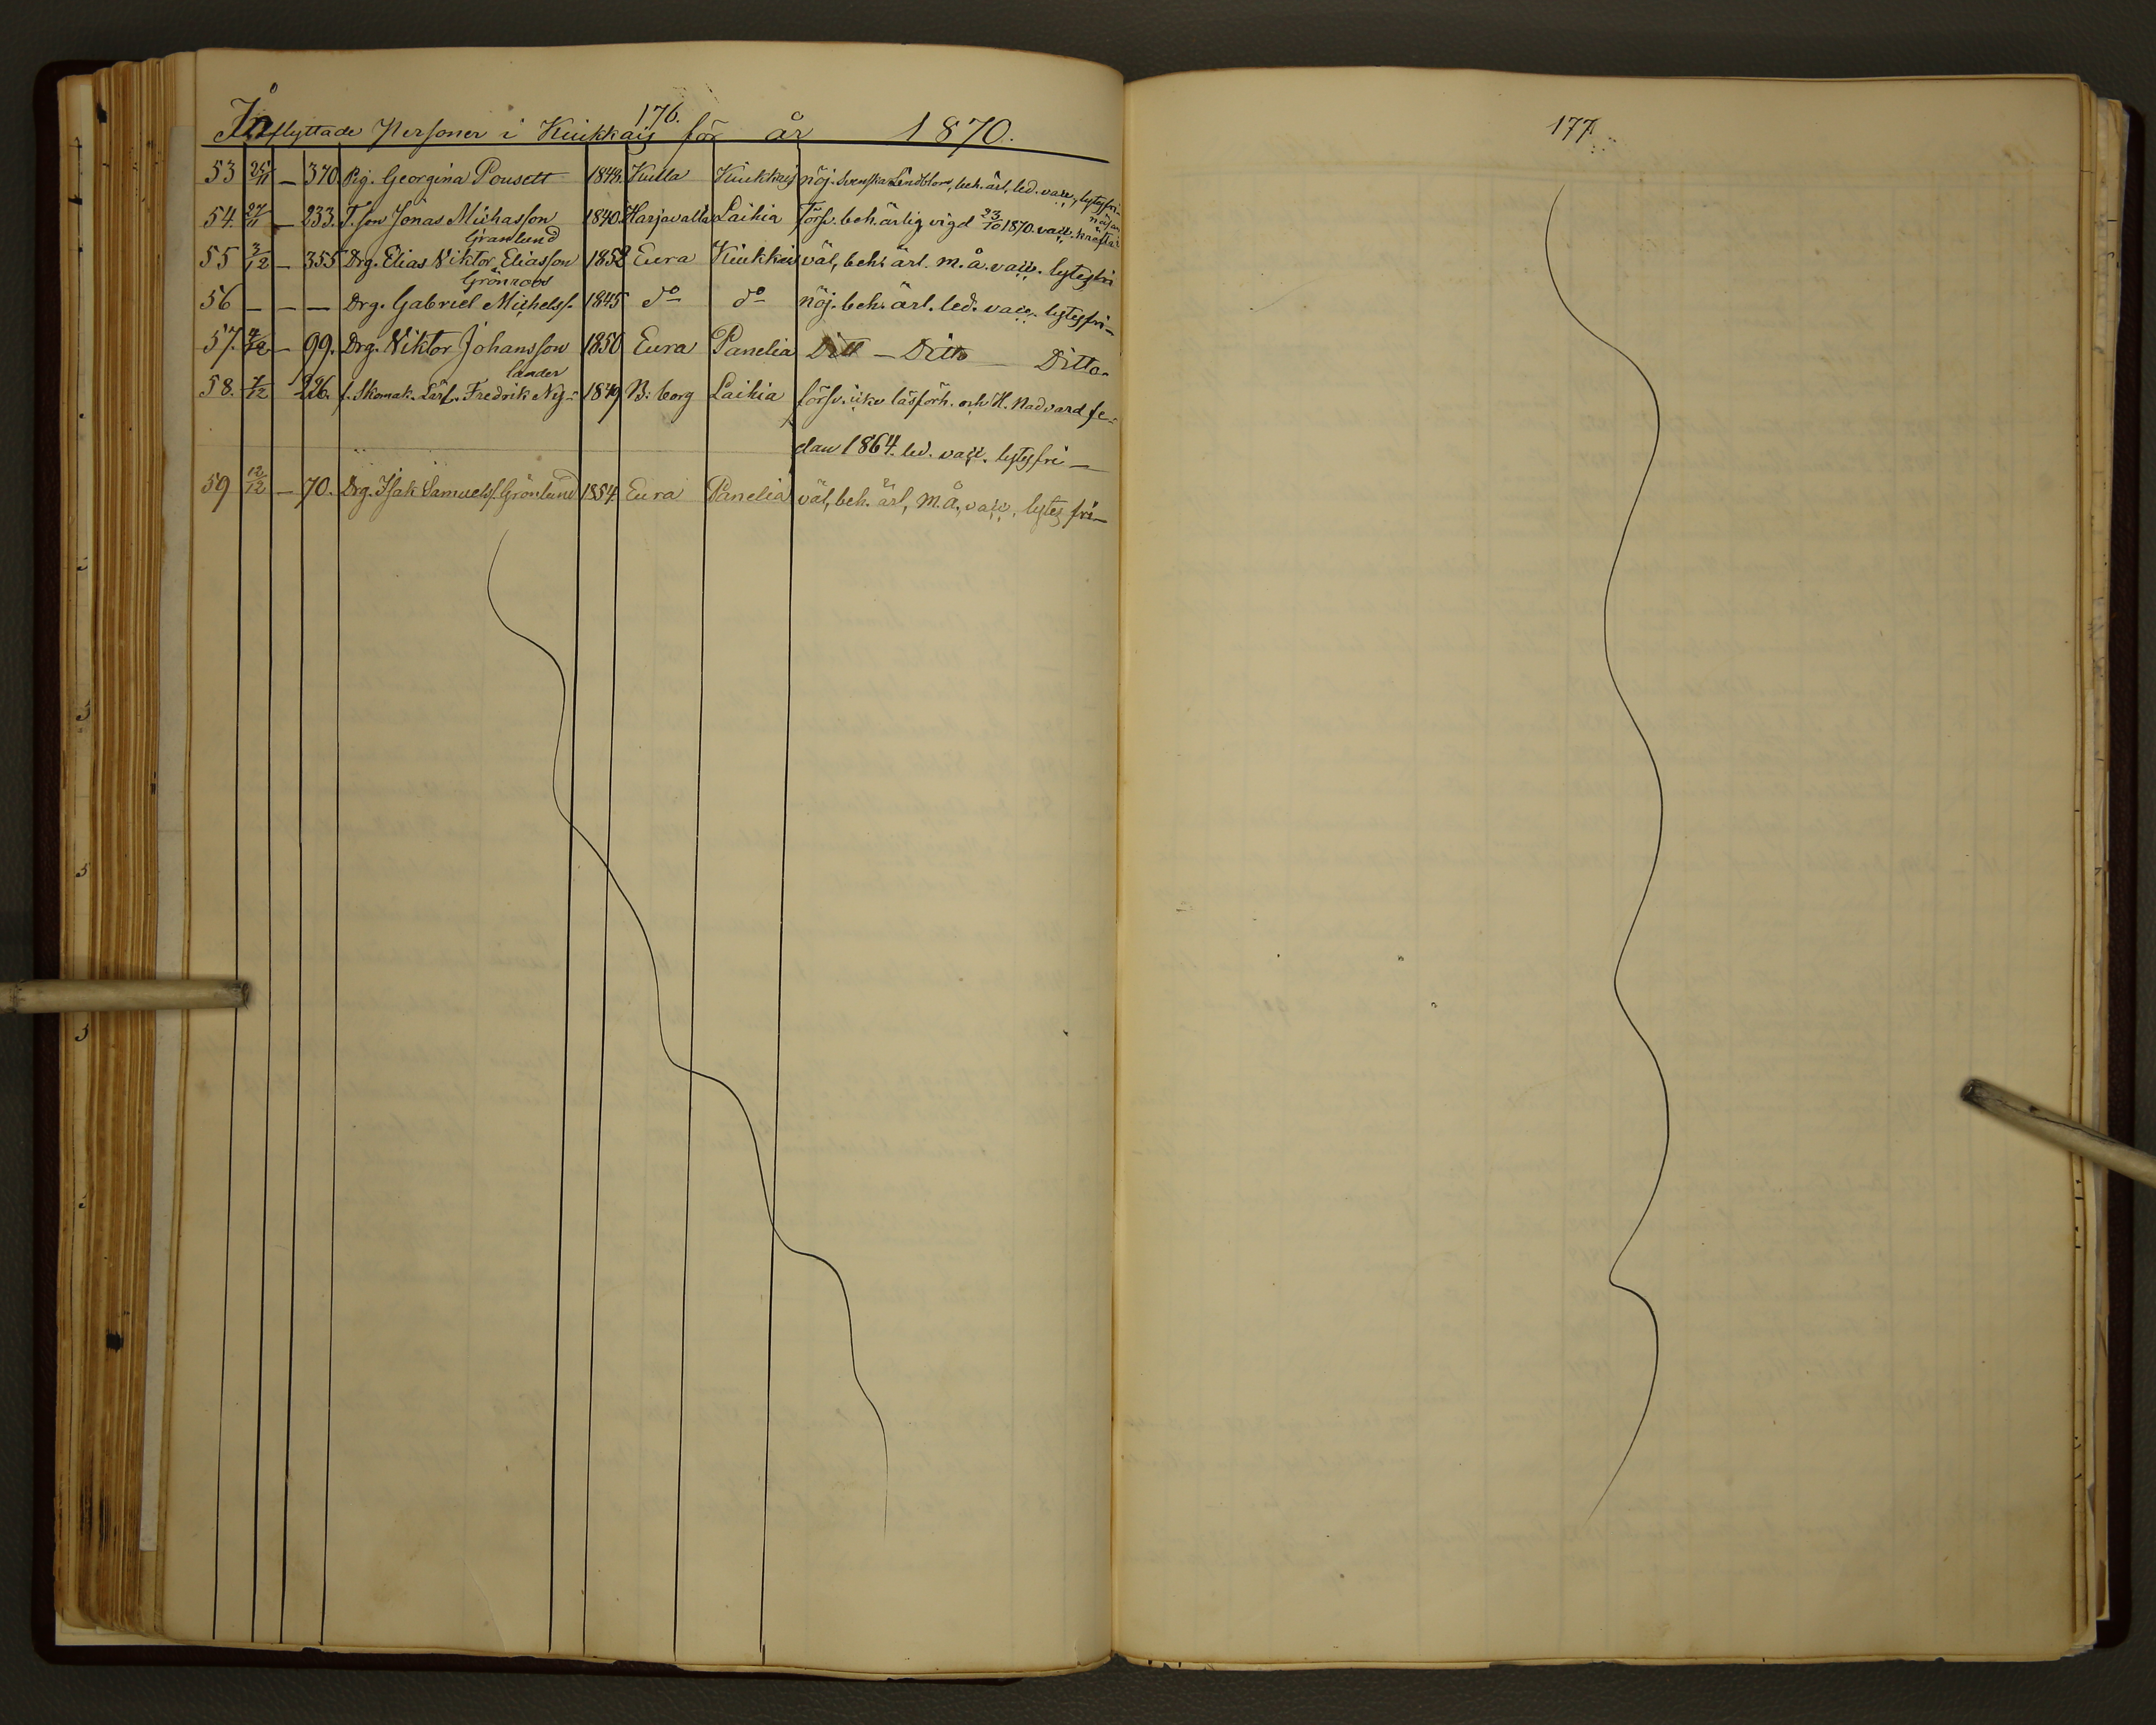 176.
Inflyttade Personer i Kiukkais för år 1870.
53 25/11 — 370. Pig. Georgina Pousett 1848. Kulla Kiukkais nöj. Svenska Lindblom, beh. ärl. led. vacc. lytesfri
54. 27/11 — 233. T. son Jonas Michasson 1840. Harjavalta Laihia försv. beh. ärlig vigd 23/10 1870. vacc.
Granlund
55 3/12 — 355 Drg. Elias Viktor Eliasson 1852 Eura Kiukkais väl, beh. ärl. m. å. vacc. lytesfri
Grönroos
56 — — — Drg. Gabriel Michelss. 1845 do do nöj. beh. ärl. led. vacc. lytesfri—
57. 4/12 — 99. Drg. Viktor Johansson 1850 Eura Panelia Ditt — Ditto — Ditto.
lander
58. 7/12 226. f. Skomak. Lärl. Fredrik Ny- 1849 B:borg Laihia försv. icke läsförh. och H. Nadvard se-
dan 1864. led. vacc. lytesfri —
59 12/12 — 70. Drg. Isak Samuelss. Grönlund 1854. Eura Panelia väl, beh. ärl, m. å, vacc, lytes fri—
177.